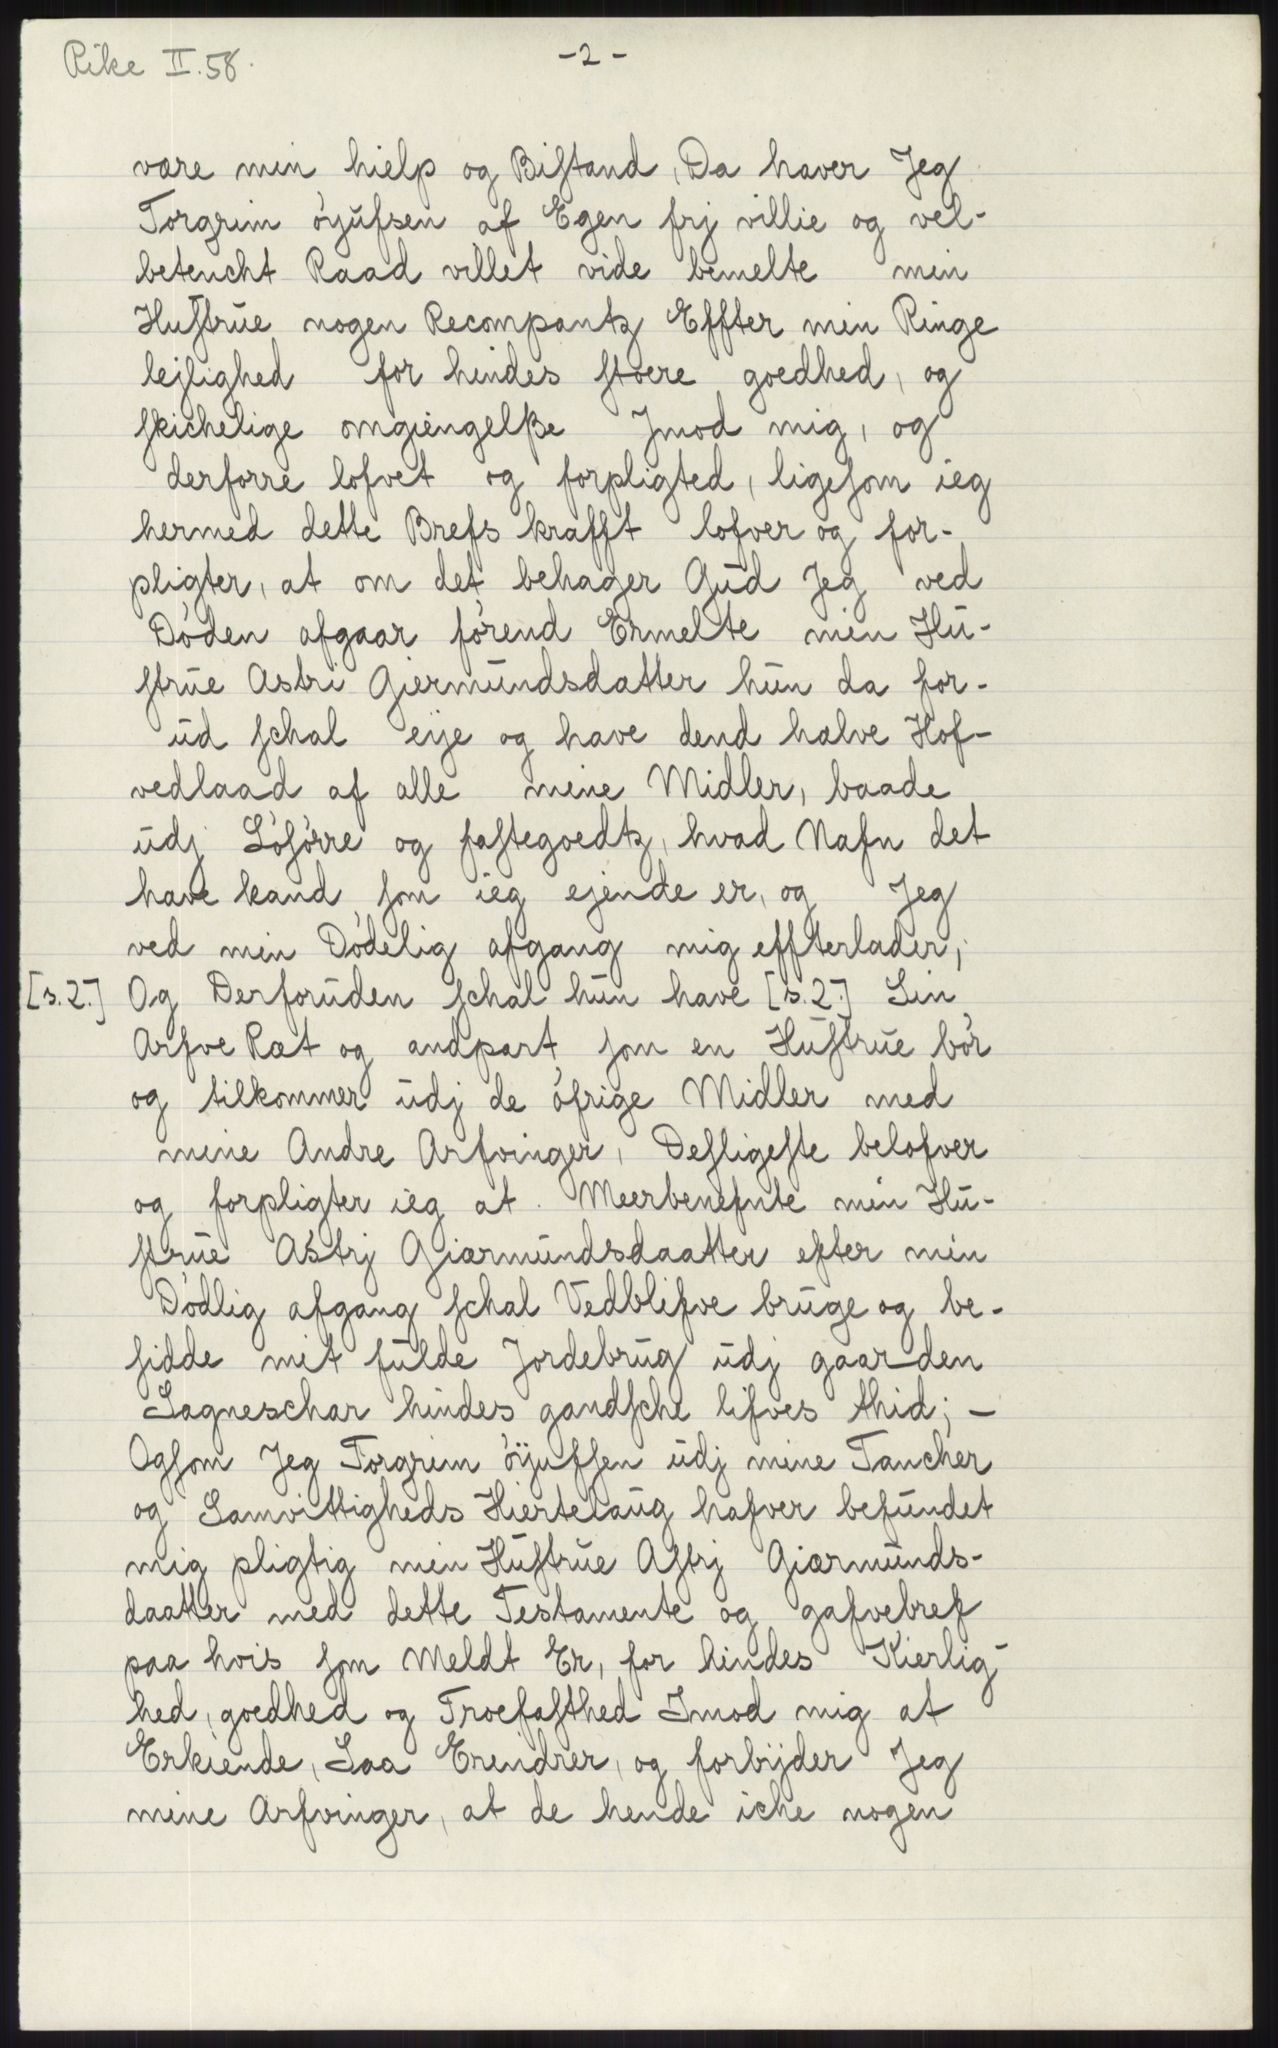 Rike II.58.
-2-
være min hielp og Biſtand, Da haver Jeg
Torgrim óÿufsen af Egen frj villie og vel-
betencht Raad villet vide bemelte min
Huſtrue nogen Recompantz Effter min Ringe
lejlighed for hindes ſtoere goedhed, og
ſkichelige omgiengelẞe Jmod mig, og
derforre lofvet og forpligted, ligeſom ieg
hermed dette Brefs krafft lofver og for-
pligter, at om det behager Gud Jeg ved
Dóden afgaar fórend Ermelte min Hu-
ſtrue Astri Giermundsdatter hun da for-
ud ſchal eije og have dend halve Hof-
vedlaad af alle mine Midler, baade
udj Lóſórre og faſtegoedtz, hvad Nafn det
have kand ſom ieg ejende er, og Jeg
ved min Dódelig afgang mig effterlader;
[s.2.] Og Derforuden ſchal hun have [s.2.] Sin
Arfve Ræt og andpart ſom en Huſtrue bór
og tilkommer udj de ófrige Midler med
mine Andre Arfvinger, Desligeſte belofver
og forpligter ieg at Meerbenefnte min Hu-
ſtrue Astrj Giærmundsdaatter efter min
Dódlig afgang ſchal Vedblifve bruge og be-
ſidde mit fulde Jordebrug udj gaarden
Sagneschar hindes gandſche lifves thid; -
Ogſom Jeg Torgrim óÿufſen udj mine Tancher
og Samvittigheds Hiertelaug hafver befundet
mig pligtig min Huſtrue Aſtrj Giærmunds-
daatter med dette Testamente og gafvebref
paa hvis ſom Meldt Er, for hindes Kierlig-
hed, goedhed og Troefaſthed Imod mig at
Erkiende, Saa Erindrer, og forbijder Jeg
mine Arfvinger, at de hende iche nogen